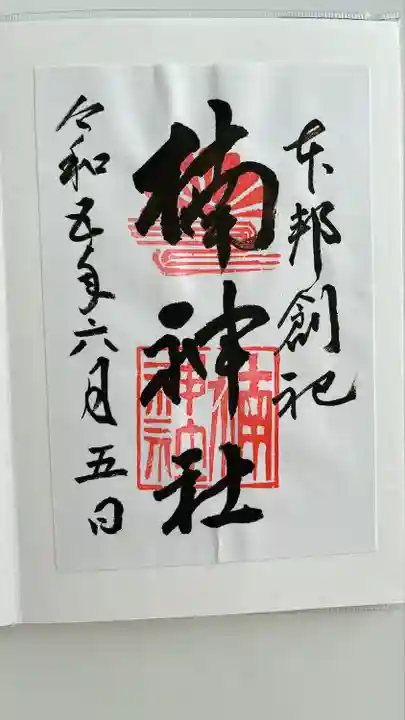 本邦創祀
楠神社
令和五年六月五日
楠
神社